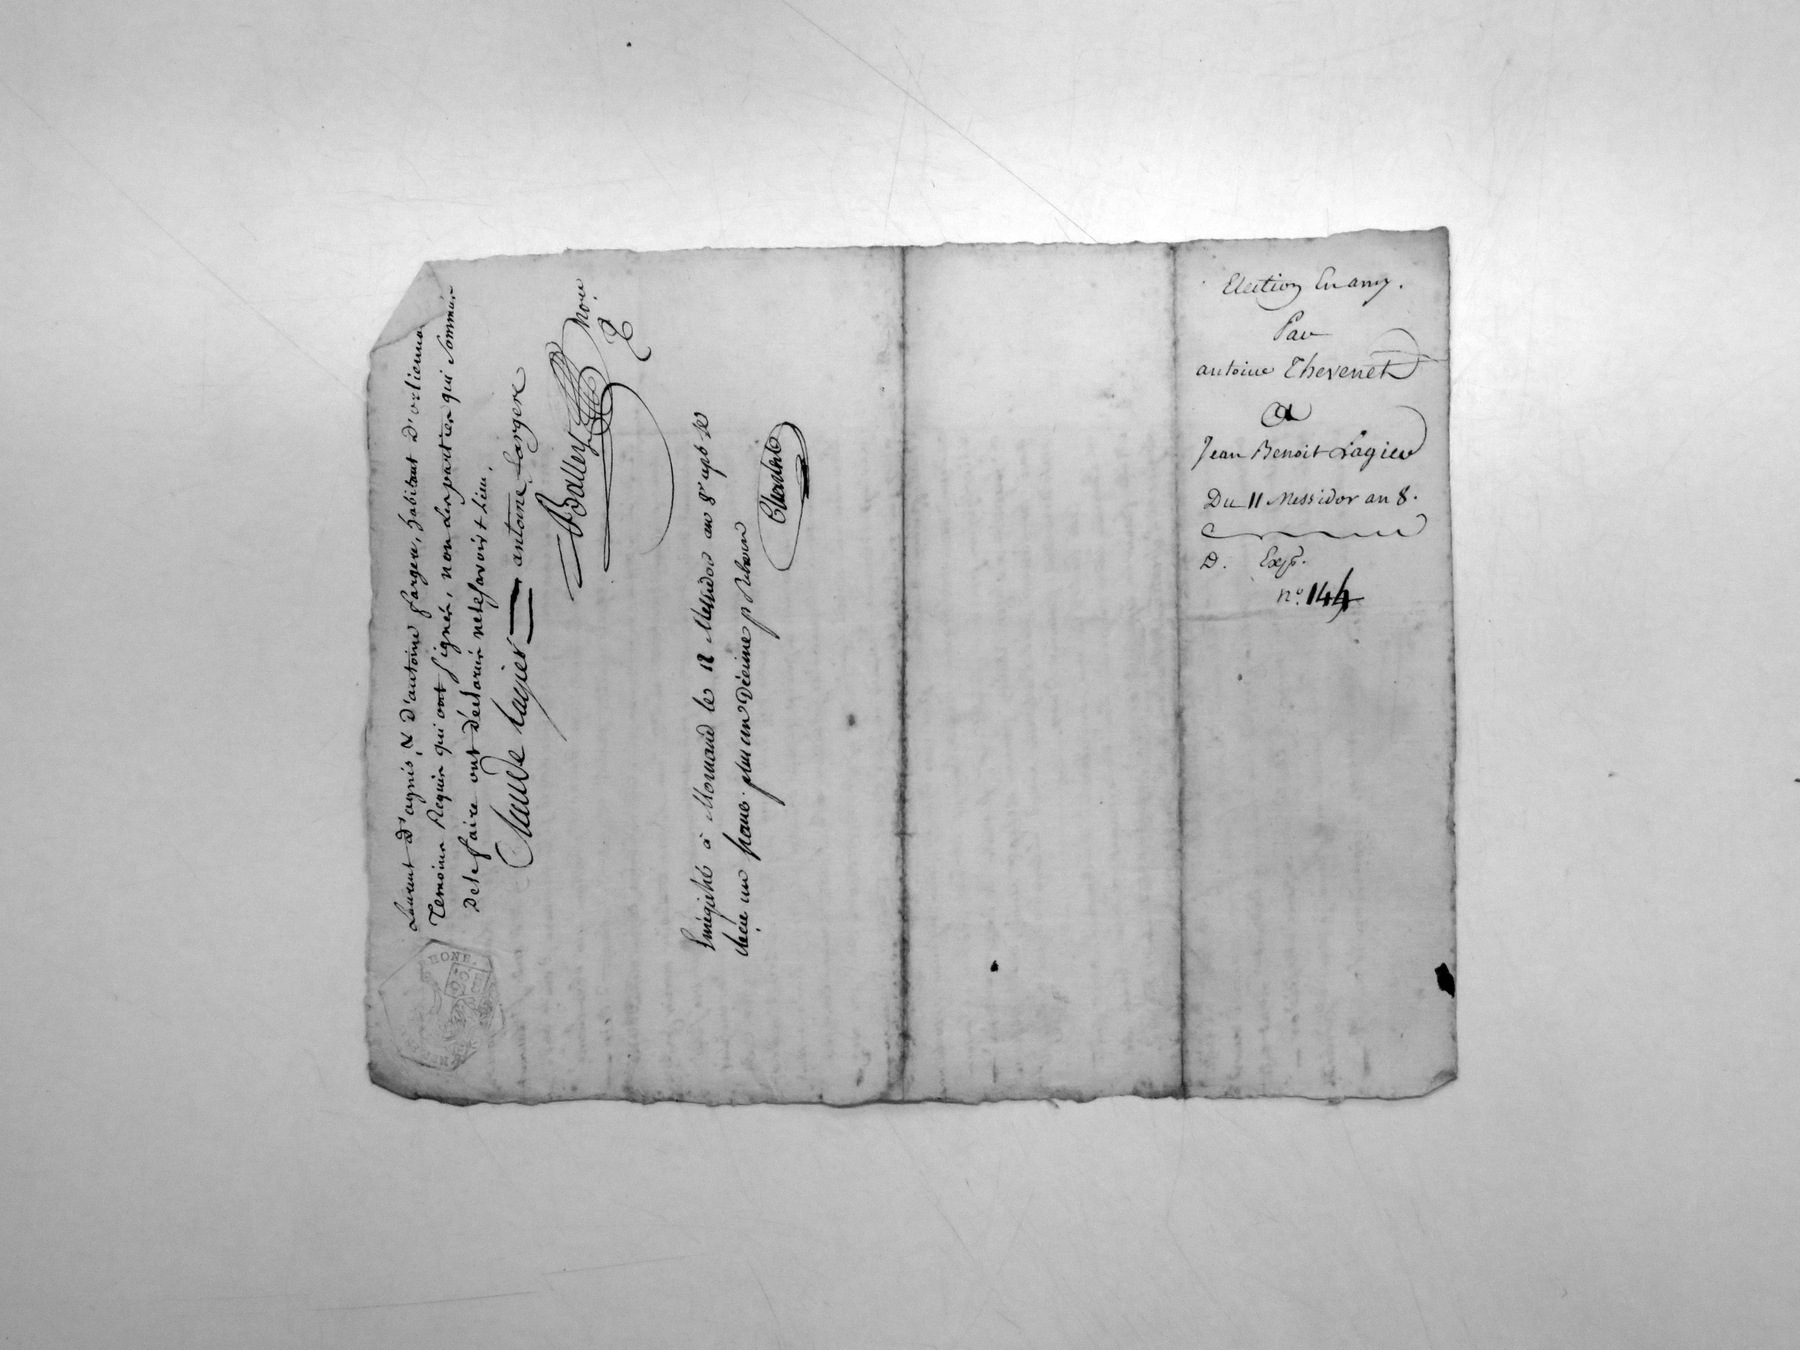 Laurent D'agnis, & D'antoine fargere, habitant D'orlienna
Temoins Requis qui ont signés, non les parties qui sommés
De le faire ont déclarés ne le savoir + lieu.
Claude Lagier antoine fargere
Balley
Enregistré à Mornand le 12 Messidor an 8
un franc plus un Décime
Election En amy.
Par
antoine Thevenet
a
Jean Benoit Lagier
Du 11 Messidor an 8.
D. Exp.
n.° 144
RHONE